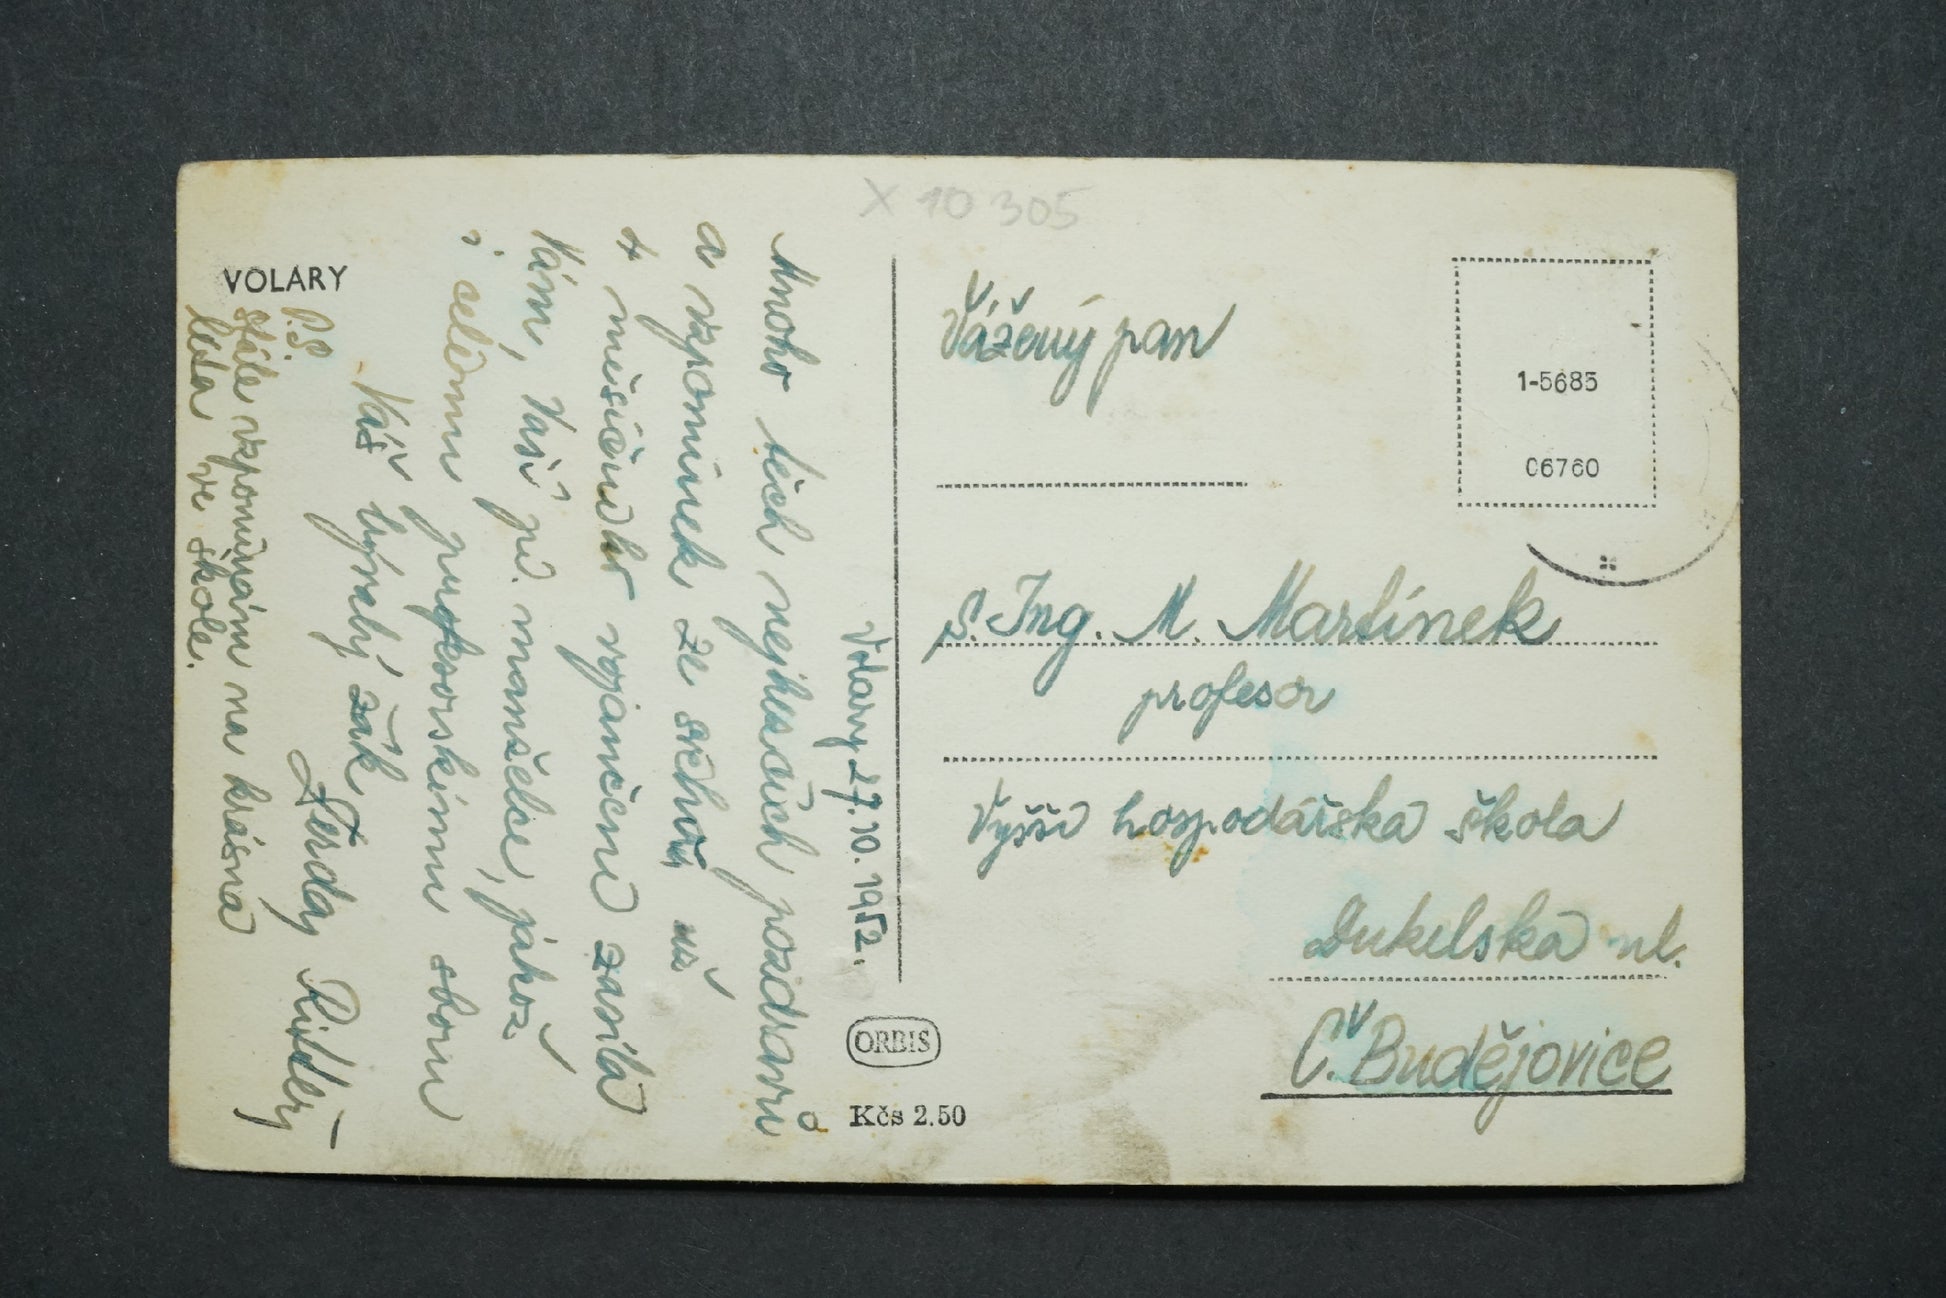 X 10 305
VOLARY
Volary 27. 10. 1952.
Mnoho těch nejhezčích pozdravů
a vzpomínek ze srdíčka už
4 měsíčního vojančení zasílá
Vám, Vaší pí. manželce, jakož
i celému profesorskému sboru
Váš bývalý žák
Ferda
P.S.
Stále vzpomínám na krásná
léta ve škole.
Vážený pan
1-5685
06760
s. Ing. M. Martínek
profesor
Vyšší hospodářská škola
Dukelská ul.
Č. Budějovice
ORBIS
Kčs 2.50